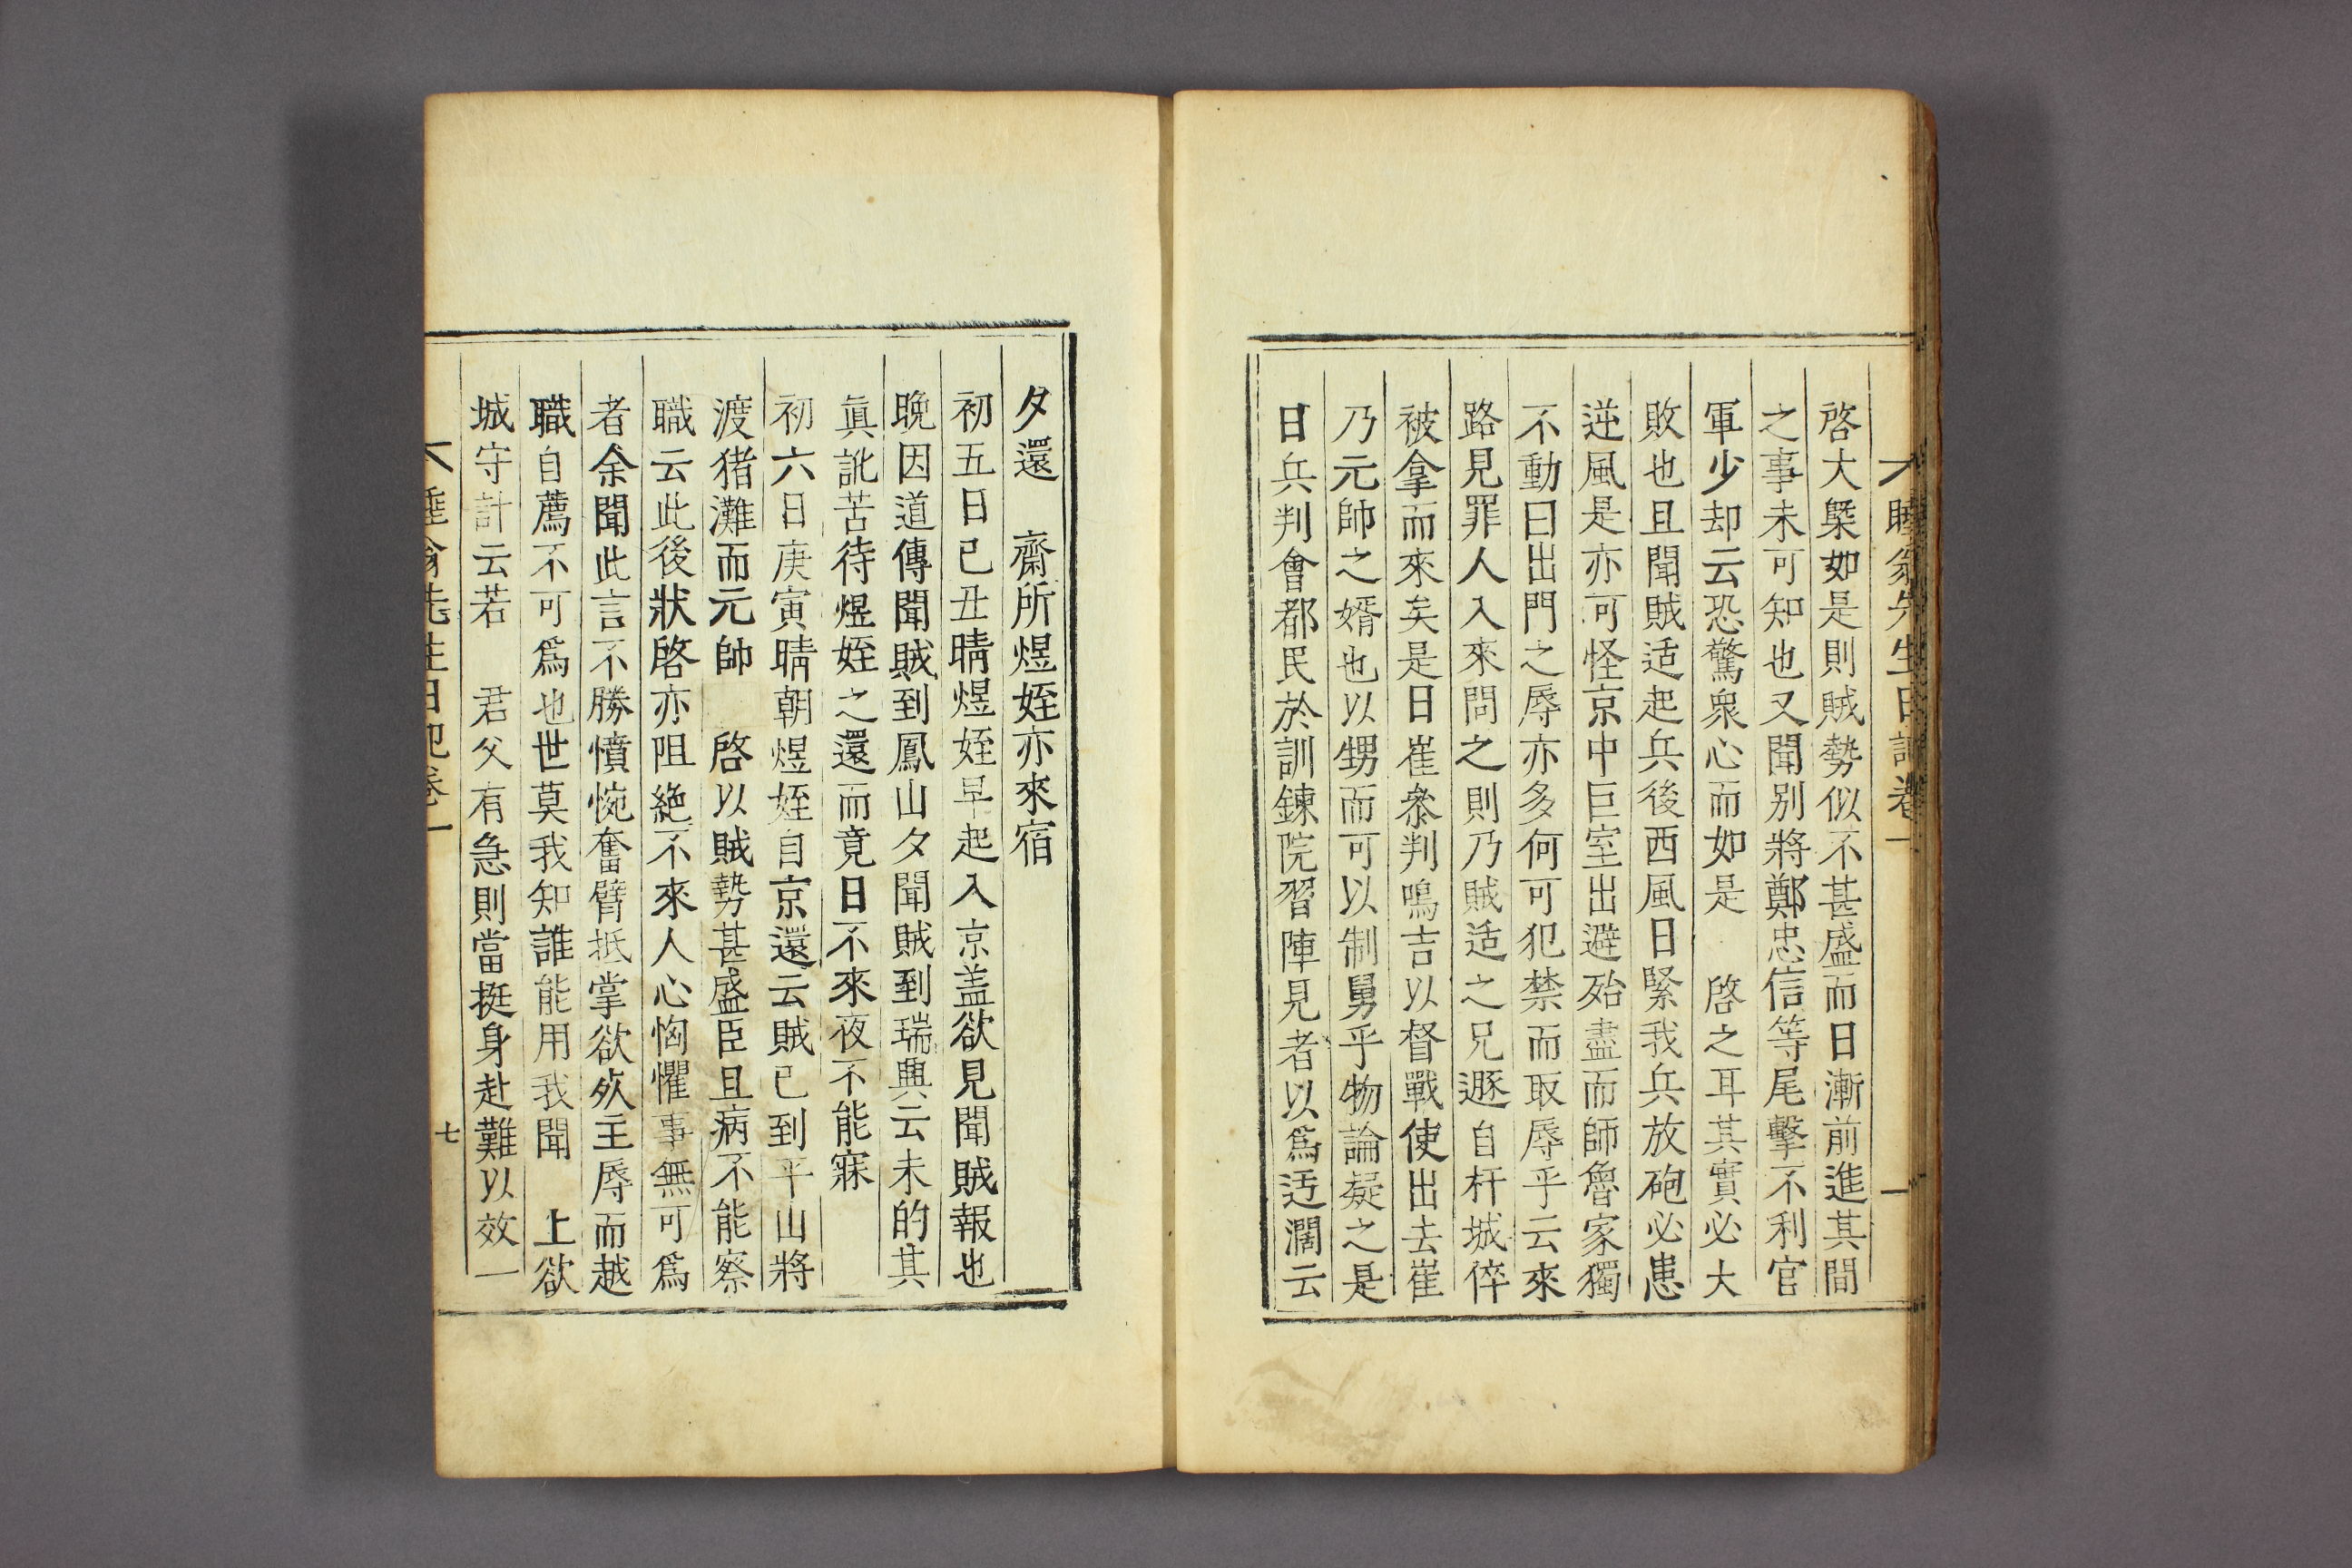 睡翁先生日記卷一
啓大槩如是則賊勢似不甚盛而日漸前進其間
之事未可知也又聞别將鄭忠信等尾擊不利官
軍少却云恐驚衆心而如是 啓之耳其實必大
敗也且聞賊适起兵後西風日緊我兵放砲必患
逆風是亦可怪京中巨室出避殆盡而師魯家獨
不動曰出門之辱亦多何可犯禁而取辱乎云來
路見罪人入來問之則乃賊适之兄遯自杆城倅
被拿而來矣是日崔叅判鳴吉以督戰使出去崔
乃元帥之婿也以甥而可以制舅乎物論疑之是
日兵判會都民於訓鍊院習陣見者以爲迃濶云
夕還 齋所煜姪亦來宿
初五日己丑晴煜姪早起入京盖欲見聞賊報也
晩因道傳聞賊到鳳山夕聞賊到瑞興云未的其
眞訛苦待煜姪之還而竟日不來夜不能寐
初六日庚寅晴朝煜姪自京還云賊已到平山將
渡猪灘而元帥 啓以賊勢甚盛臣且病不能察
職云此後狀啓亦阻絶不來人心恟懼事無可爲
者余聞此言不勝憤惋奮臂抵掌欲效主辱而越
職自薦不可爲也世莫我知誰能用我聞 上欲
城守計云若 君父有急則當挺身赴難以效一
睡翁先生日記卷一 七